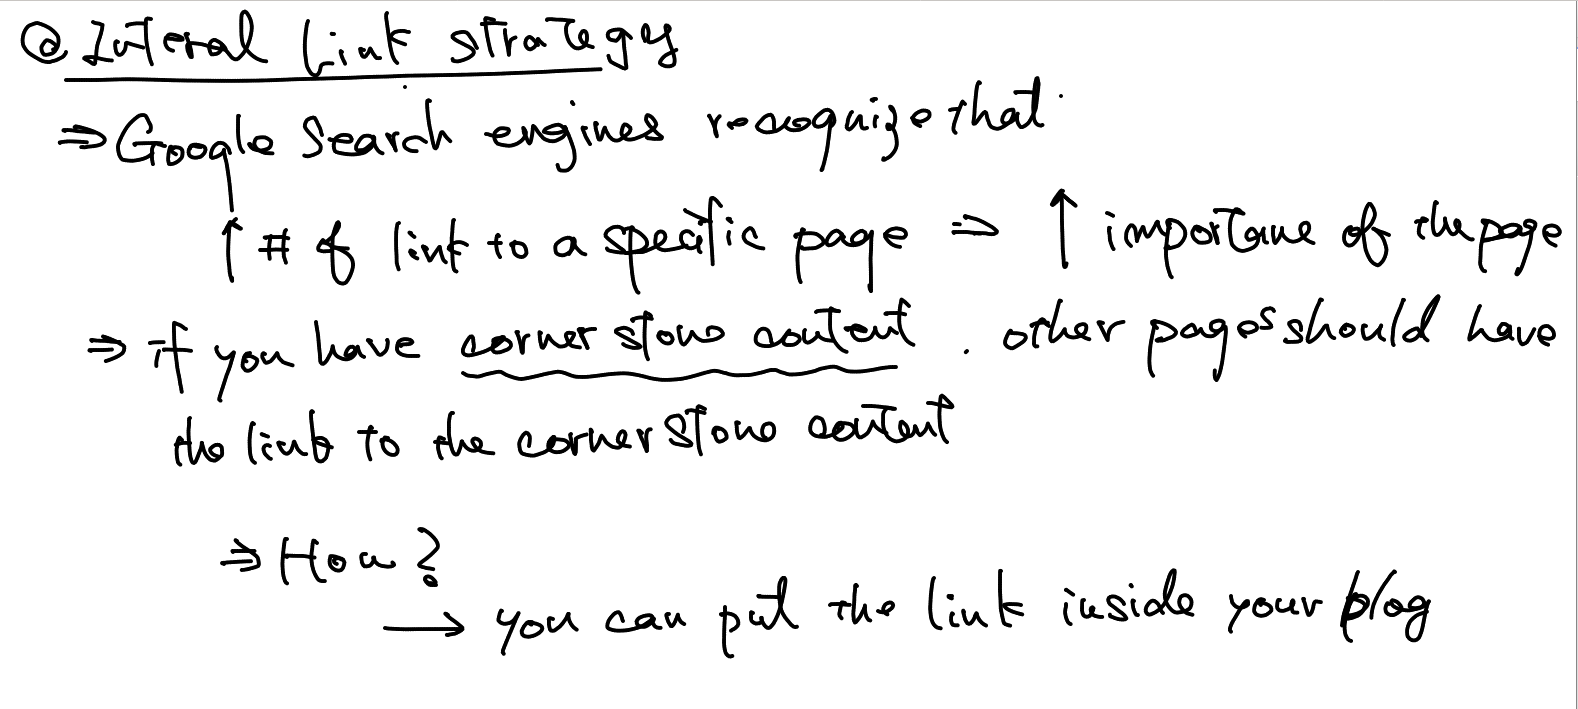 @ Interal Link strategy
⇒ Google Search engines recognize that
↑ # of link to a specific page ⇒ ↑ importance of the page
⇒ if you have corner stone content. other pages should have
the link to the corner stone content
⇒ How?
→ you can put the link inside your blog